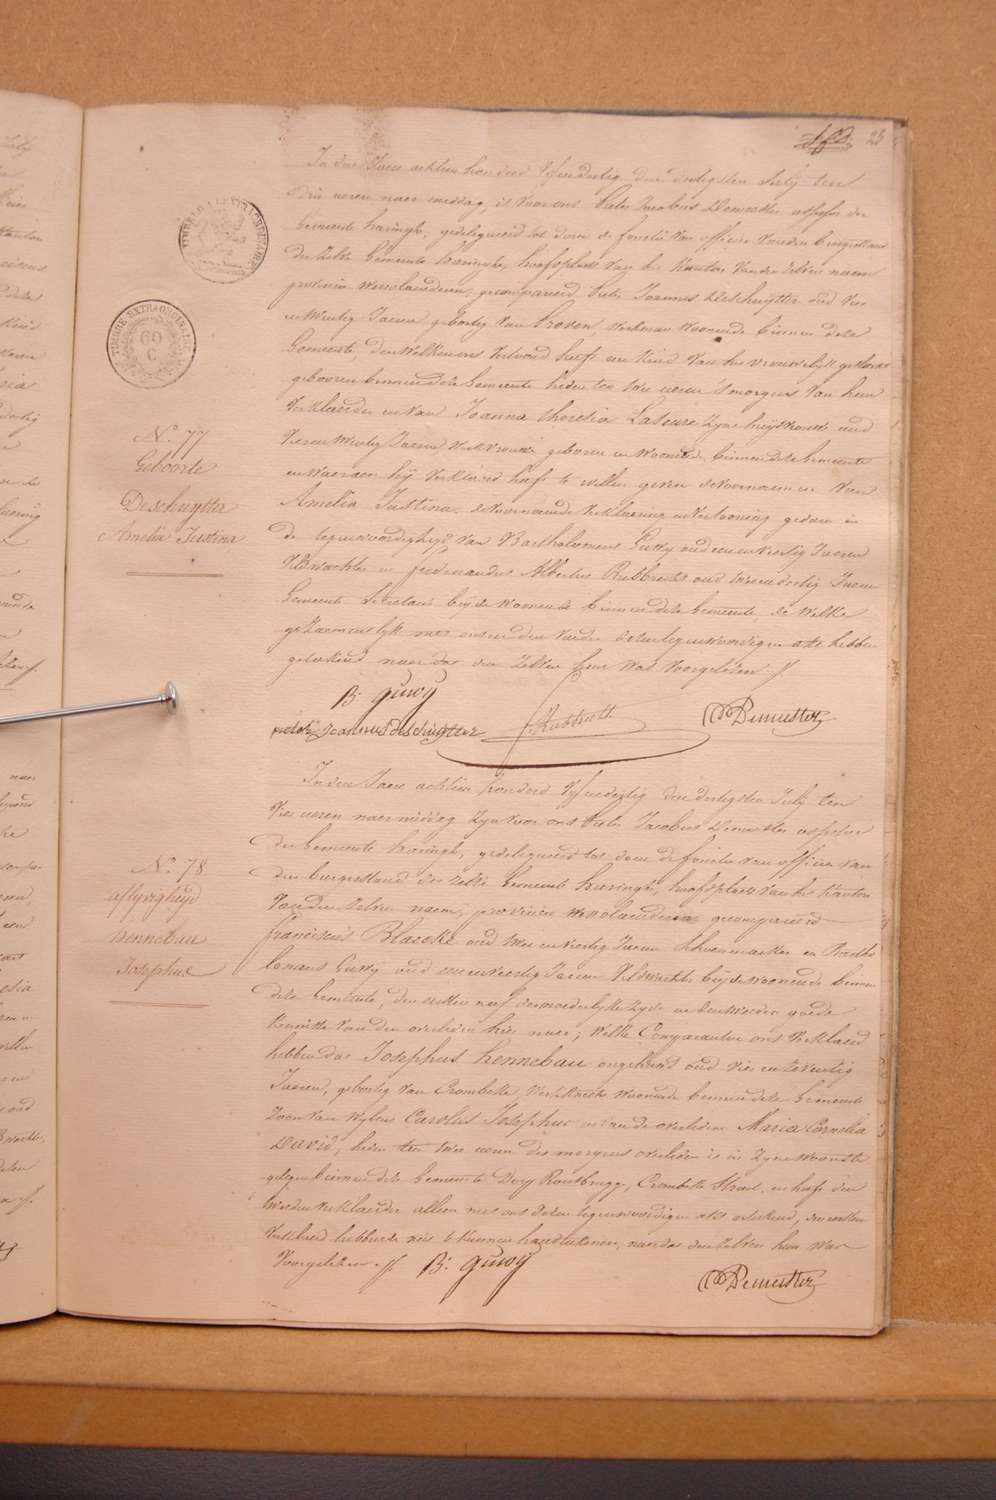 25
In den Jaere achtien honderd Vyfendertig den dertigsten July ten
drie ueren naer middag, is Voor ons Pieter Jacobus Demester assessor der
Gemeente haringhe, gedeligueerd tot doen de fonctie van officier van den burgerstand
der Zelve Gemeente haringhe, hoofdplaets van het Kanton Van den Zelven naem
provincie Westvlaenderen, gecompareerd Pieter Joannes Deschuytter oud Vier
en twintig Jaeren geboortig Van Proven, werkman Woonende binnen deze
Gemeente, den Welken ons Vertoond heeft een Kind Van het vrouwelyk geslacht
geboren binnen deze Gemeente heden ten twee ueren 's morgens Van hem
Verklaerder en Van Joanna theresia Lateure zyne huysvrouwe oud
Vier en twintig Jaeren Werkvrouwe geboren en Woonende binnen deze Gemeente
en waeraen hy Verklaerd heeft te willen geven de Voornaemen Van
Amelia Justina, de Voornoemde Verklaering en Vertooning gedaen in
de tegenwoordigheyd Van Bartholomeus Guwy oud een en Veertig Jaeren
Veldwachter en ferdinandus Albertus Rubbrecht oud twee en dertig Jaeren
Gemeente Secretaris beyde Woonende binnen deze Gemeente, de Welke
gezaementlyk met ons en den Vader deze tegenwoordigen akte hebben
geteekend naer dat den Zelven hem Was Voorgelezen ./.
B: guwy
pieter Joannes deschuytter
Rubbrecht
Demester
TIMBRE EXTRAORDINAIRE
TIMBRE EXTRAORDINAIRE
60
C
N.º 77
Geboorte
Deschuytter
Amelia Justina
In den Jaere achtien honderd Vyfendertig den dertigsten July ten
Vier ueren naer middag Zyn Voor ons Pieter Jacobus Demester assessor
der Gemeente haringhe, gedeligueerd tot doen de fonctie van officier van
den burgerstand der Zelve Gemeente haringhe, hoofdplaets Van het Kanton
Van den Zelven naem, provincie Westvlaenderen gecompareerd
franciscus Blaecke oud twee en Veertig Jaeren Schoenmaeker en Bartho
lomeus Guwy oud een en Veertig Jaeren Veldwachter beyde woonende binnen
deze Gemeente, den eersten neef van moederlyke zyde en den tweeden goede
Kennisse Van den overleden hier naer, Welke Comparanten ons Verklaerd
hebben dat Josephus hennebau ongehuwd oud Vier en Zeventig
Jaeren, geboortig Van Crombeke, Werkknecht Woonende binnen deze Gemeente
Zoon Van Wylent Carolus Josephus en Van de overleden Maria Cornelia
David, heden ten twee ueren des morgens overleden is in Zyne Woonste
gelegen binnen deze Gemeente Dorp Rousbrugge, Crombeke Straet, en heeft den
tweeden Verklaerder alleen met ons dezen tegenwoordigen akte geteekend, den eersten
Verklaerd hebbende niet te Kunnen handteekenen, naer dat den Zelven hem was
Voorgelezen ./. B: guwy
Demester
N.º 78
aflyvigheyd
hennebau
Josephus